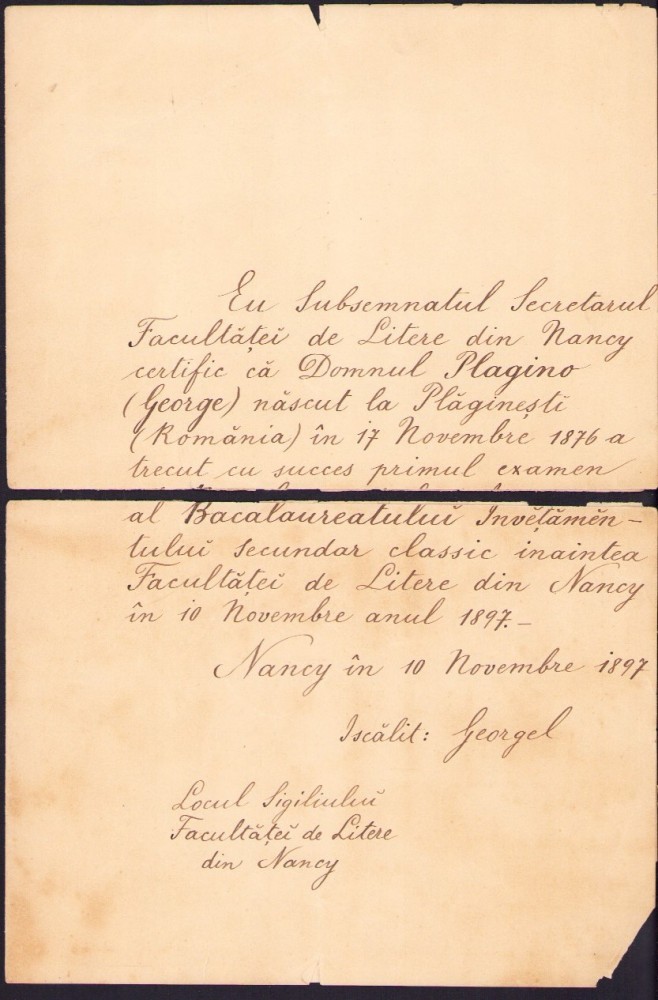 Eu Subsemnatul Secretarul
Facultăței de Litere din Nancy
certific că Domnul Plagino
(George) născut la Plăginești
(România) în 17 Novembre 1876 a
trecut cu succes primul examen
al Bacalaureatului Învĕțămĕn-
tului secundar classic inaintea
Facultăței de Litere din Nancy
în 10 Novembre anul 1897.-
Nancy în 10 Novembre 1897
Iscălit: Georgel
Locul Sigiliului
Facultăței de Litere
din Nancy